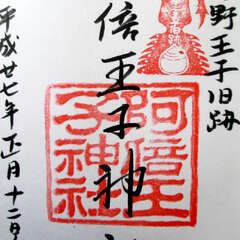 野王子旧跡
倍王子神
阿倍王
子神社
平成廿七年正月十二日